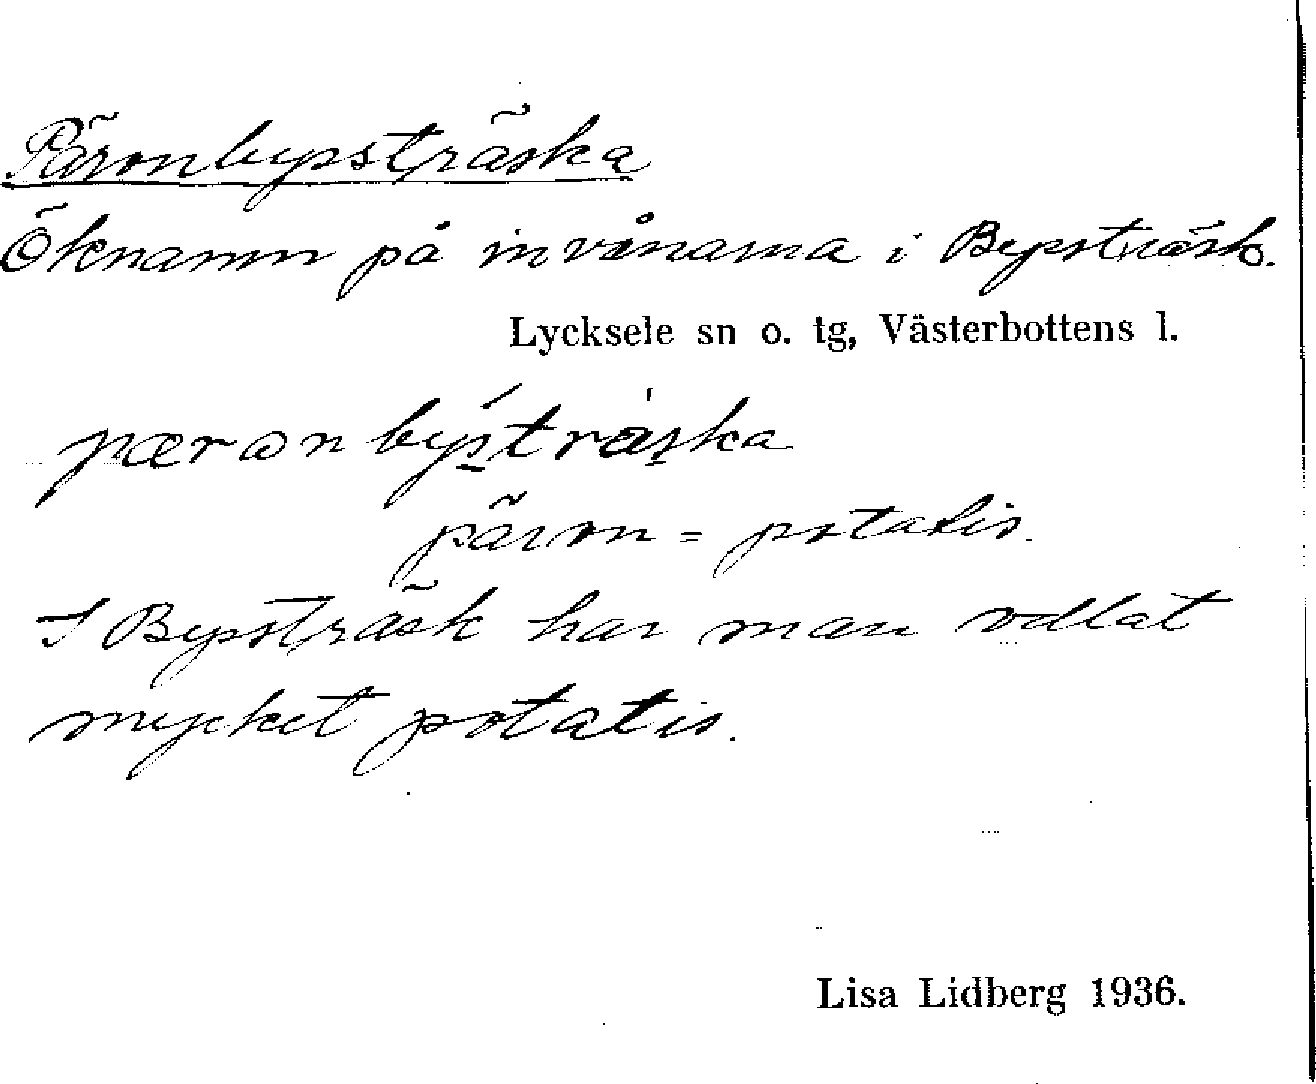 Päronbysträska
Öknamn på invånarna i Bysträsk.
Lycksele sn o. tg, Västerbottens l.
päron = potatis.
I Bysträsk har man odlat
mycket potatis.
Lisa Lidberg 1936.